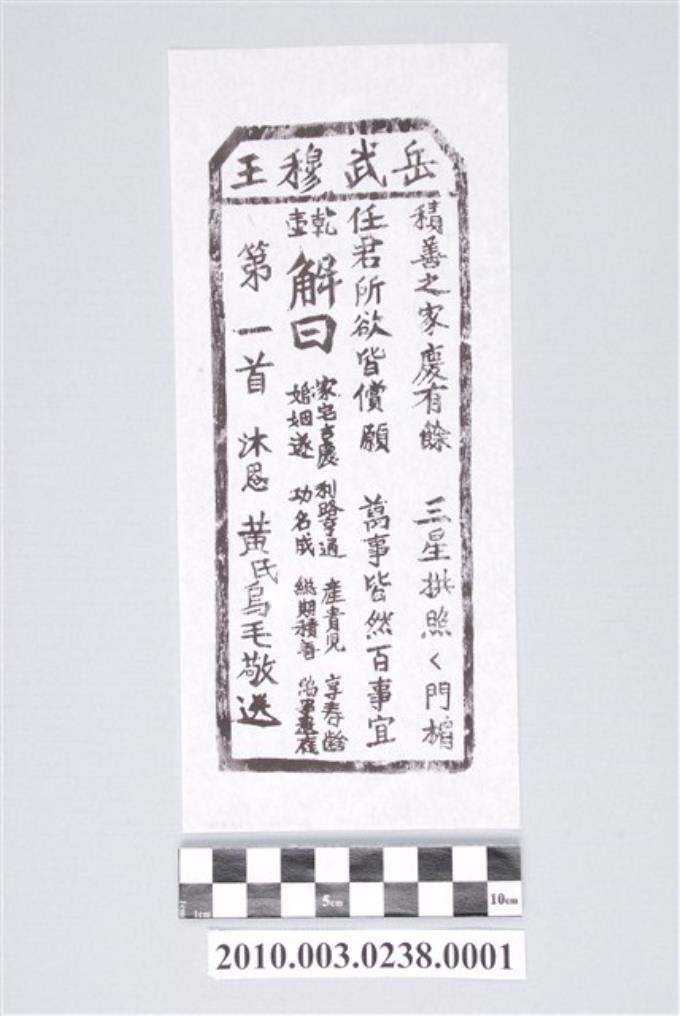 岳武穆王
積善之家慶有餘 三星拱照々門楣
任君所欲皆償願 萬事皆然百事宜
乾
解曰
家宅吉慶 利路亨通 產貴兒 享春齡
婚姻遂 功名成 繼期積善
第一首 沐恩 黃氏烏毛敬送
1cm
5cm
10cm
2010.003.0238.0001